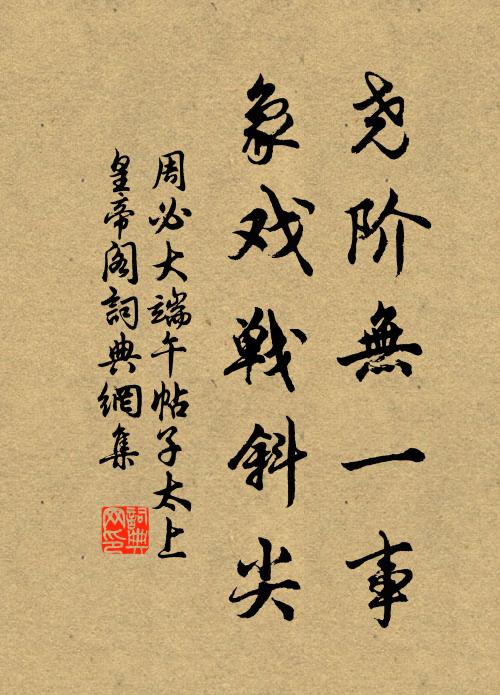 尧阶無一事
象戏戦斜尖
周必大端午帖子太上
皇帝阁詞典網集
詞典網印